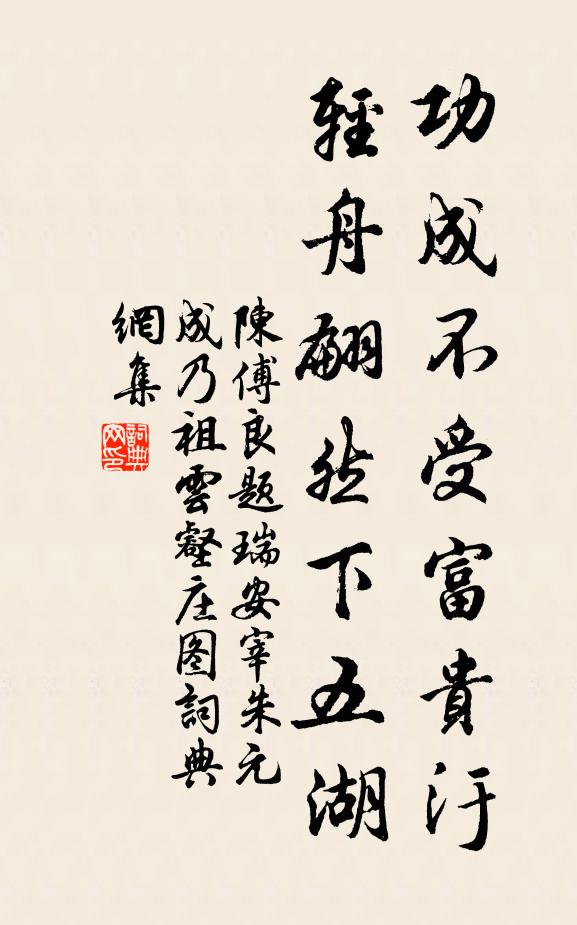 功成不受富貴汙
輕舟翩然下五湖
陳傅良題瑞安宰朱元
成乃祖雲壑庄图詞典
網集
詞典
网印